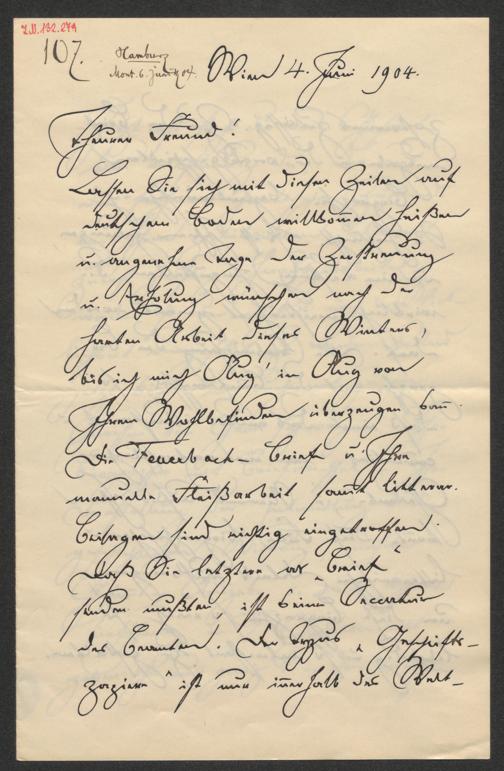 I.N. 132.279
107.
Hamburg
Mont. 6. Juni 904.
Wien 4. Juni 1904.
Theurer Freund!
Lassen Sie sich mit diesen Zeilen auf
deutschem Boden willkom̅en heißen
u. angenehme Tage der Zerstreuung
u. Erholung wünschen nach der
harten Arbeit dieses Winters,
bis ich mich Aug' in Aug von
Ihrem Wohlbefinden überzeugen kan̅.
Die Feuerbach-Briefe u. Ihre
manuelle Fleißarbeit samt litterar.
Beigaben sind richtig eingetroffen.
Daß Sie letztere als „Brief“
senden mußten, ist keine Seccatur
des Beamten. Der Typus „Geschäfts-
papiere“ ist nur in̅erhalb des Welt-